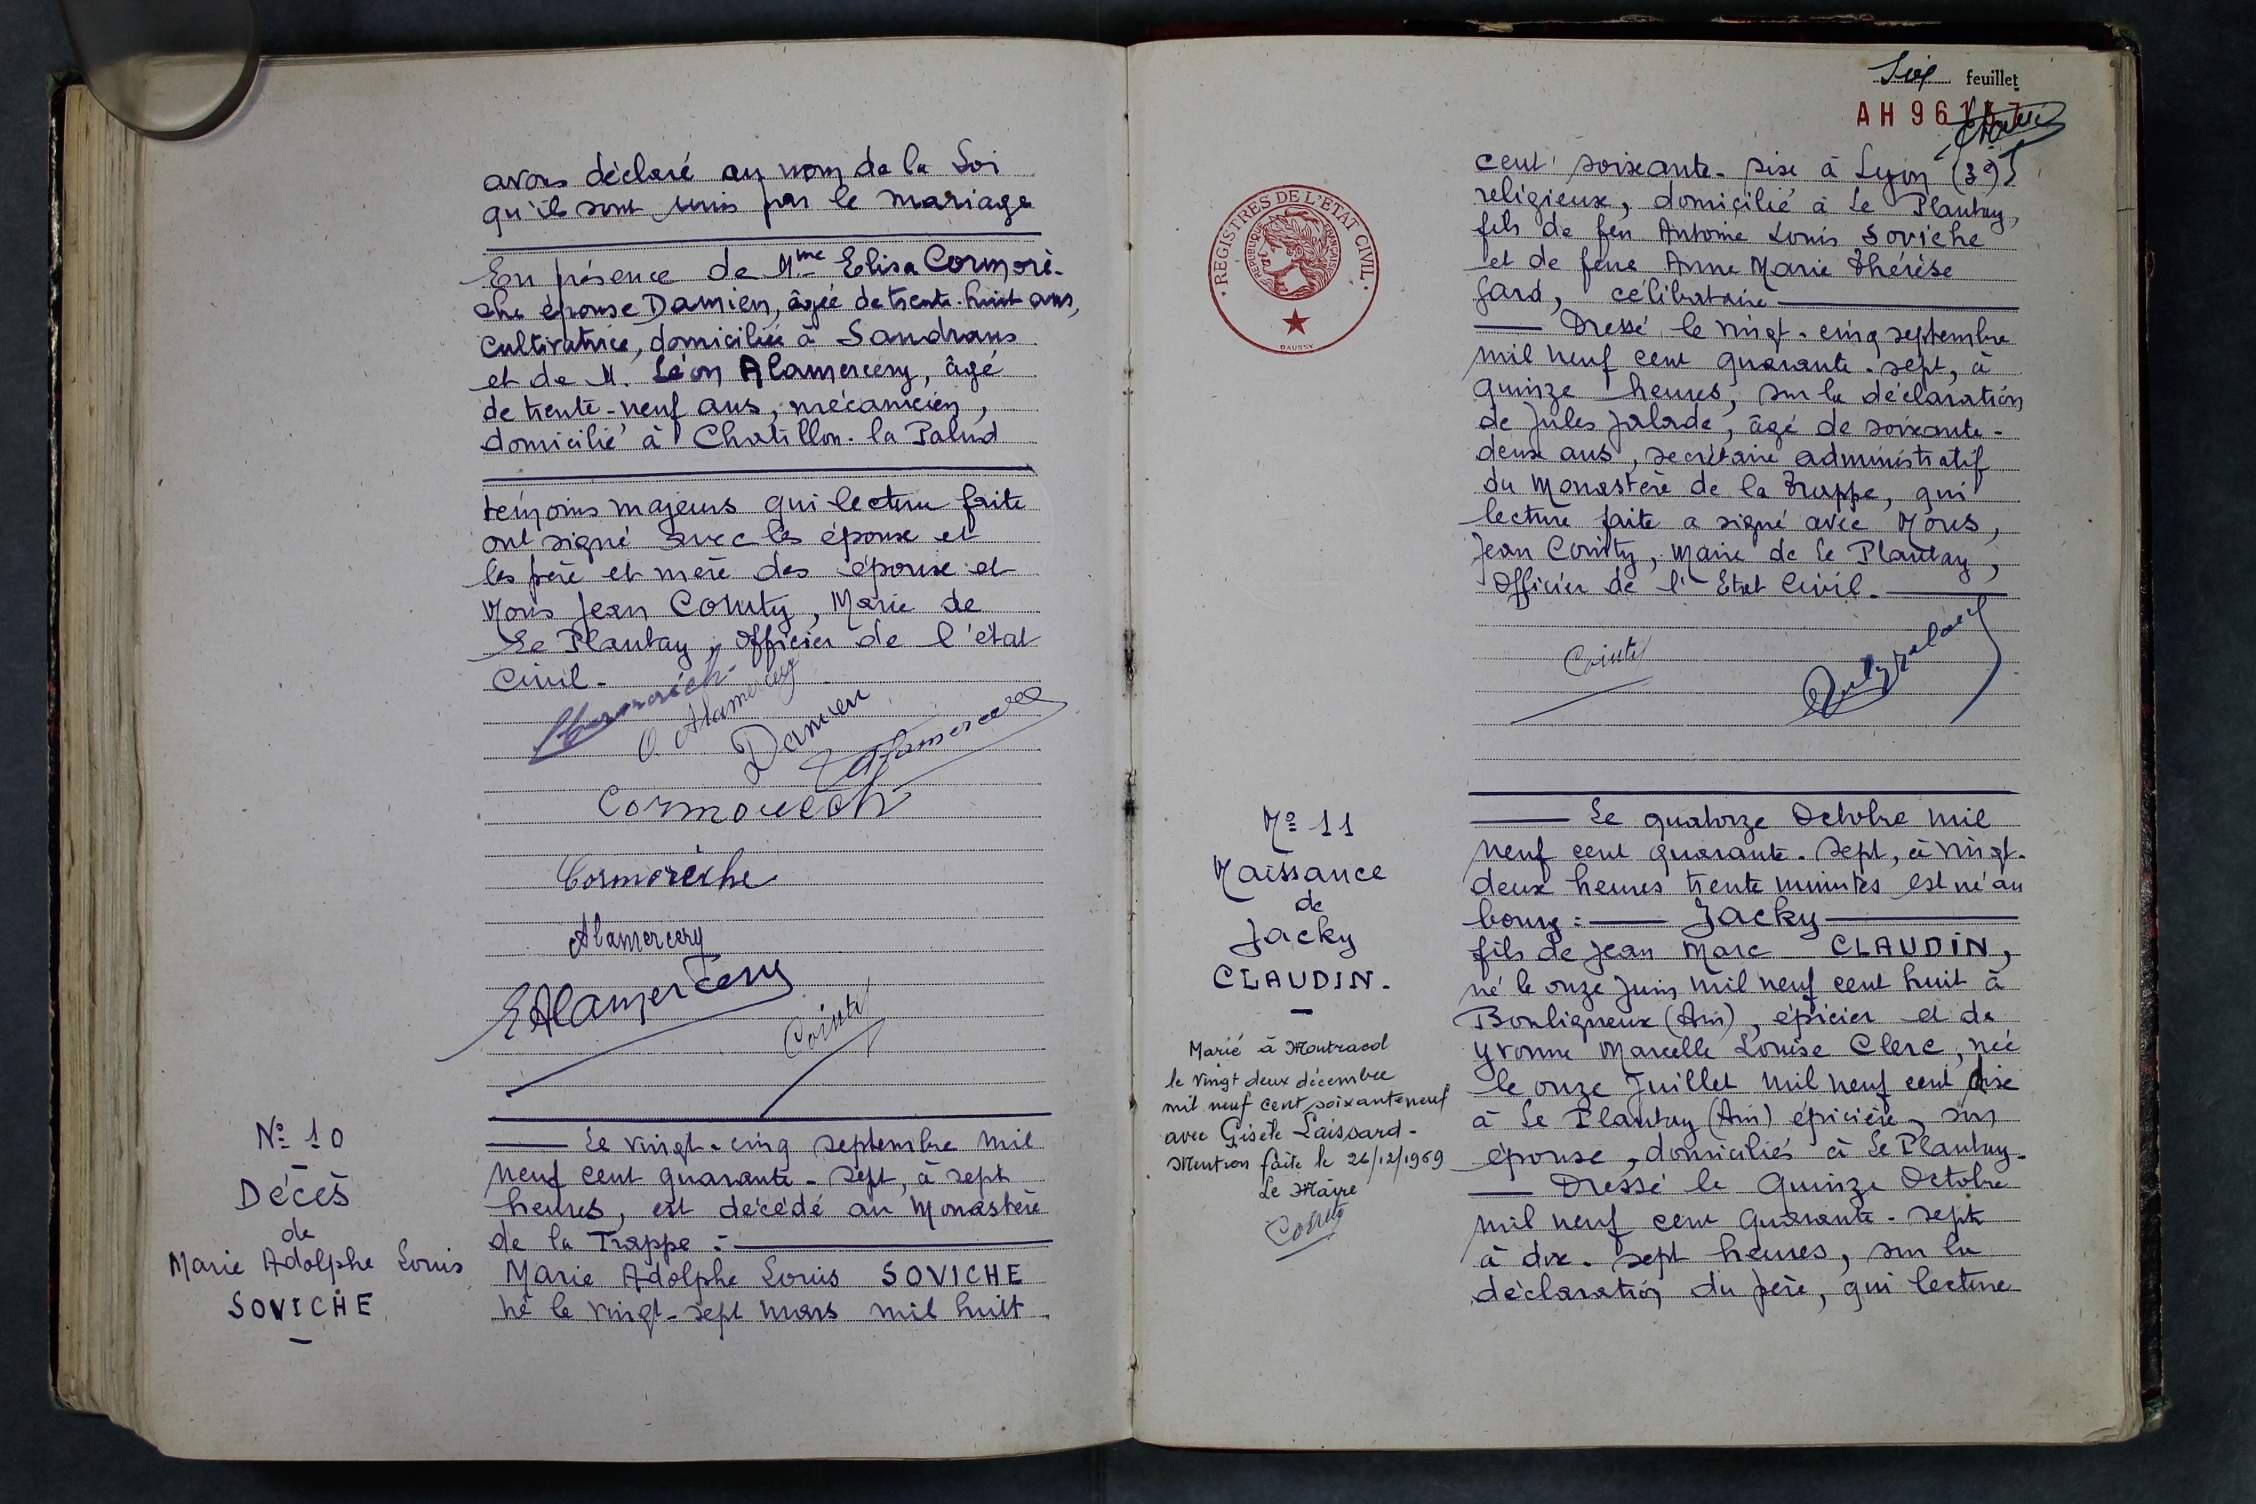 avons déclaré au nom de la Loi
qu'ils sont unis par le mariage
En présence de Mme Elisa Cormorè-
che épouse Damien, âgée de trente-huit ans,
cultivatrice, domiciliée à Sandrans
et de M. Léon Alamercery, âgé
de trente-neuf ans, mécanicien,
domicilié à Chatillon-la Palud
témoins majeurs qui lecture faite
ont signé avec les époux et
les père et mère des époux et
Nous Jean Cointy, Maire de
Le Plantay, Officier de l'état
Civil.-
O. Alamercery
Damien
Cormorèche
Alamercery
E Alamercery
Nº 10
Décès
de
Marie Adolphe Louis
SOVICHE
Le vingt-cinq septembre mil
neuf cent quarante-sept, à sept
heures, est décédé au Monastère
de la Trappe :
Marie Adolphe Louis SOVICHE
né le vingt-sept mars mil huit
Six feuillet
AH 96157
cent soixante-six à Lyon (3e)
religieux, domicilié à Le Plantay,
fils de feu Antoine Louis Soviche
et de feue Anne Marie Thérèse
Gard, célibataire
Dressé le vingt-cinq septembre
mil neuf cent quarante-sept, à
quinze heures, sur la déclaration
de Jules Jalade, âgé de soixante-
deux ans, secrétaire administratif
du Monastère de la Trappe, qui
lecture faite a signé avec Nous,
Jean Cointy, Maire de Le Plantay,
Officier de l'Etat Civil.-
REGISTRES DE L'ETAT CIVIL
REPUBLIQUE FRANÇAISE
DAUSSY
Nº 11
Naissance
de
Jacky
CLAUDIN.
Marié à Montracol
le vingt deux décembre
mil neuf cent soixante neuf
avec Gisèle Laissard-
Mention faite le 26/12/1969
Le Maire
Le quatorze Octobre mil
neuf cent quarante-sept, à vingt-
deux heures trente minutes est né au
bourg : Jacky
fils de Jean Marc CLAUDIN,
né le onze Juin mil neuf cent huit à
Bouligneux (Ain), épicier et de
Yvonne Marcelle Louise Clerc, née
le onze Juillet mil neuf cent dix
à Le Plantay (Ain) épicière, son
épouse, domiciliés à Le Plantay.
Dressé le Quinze Octobre
mil neuf cent Quarante-sept
à dix-sept heures, sur la
déclaration du père, qui lecture